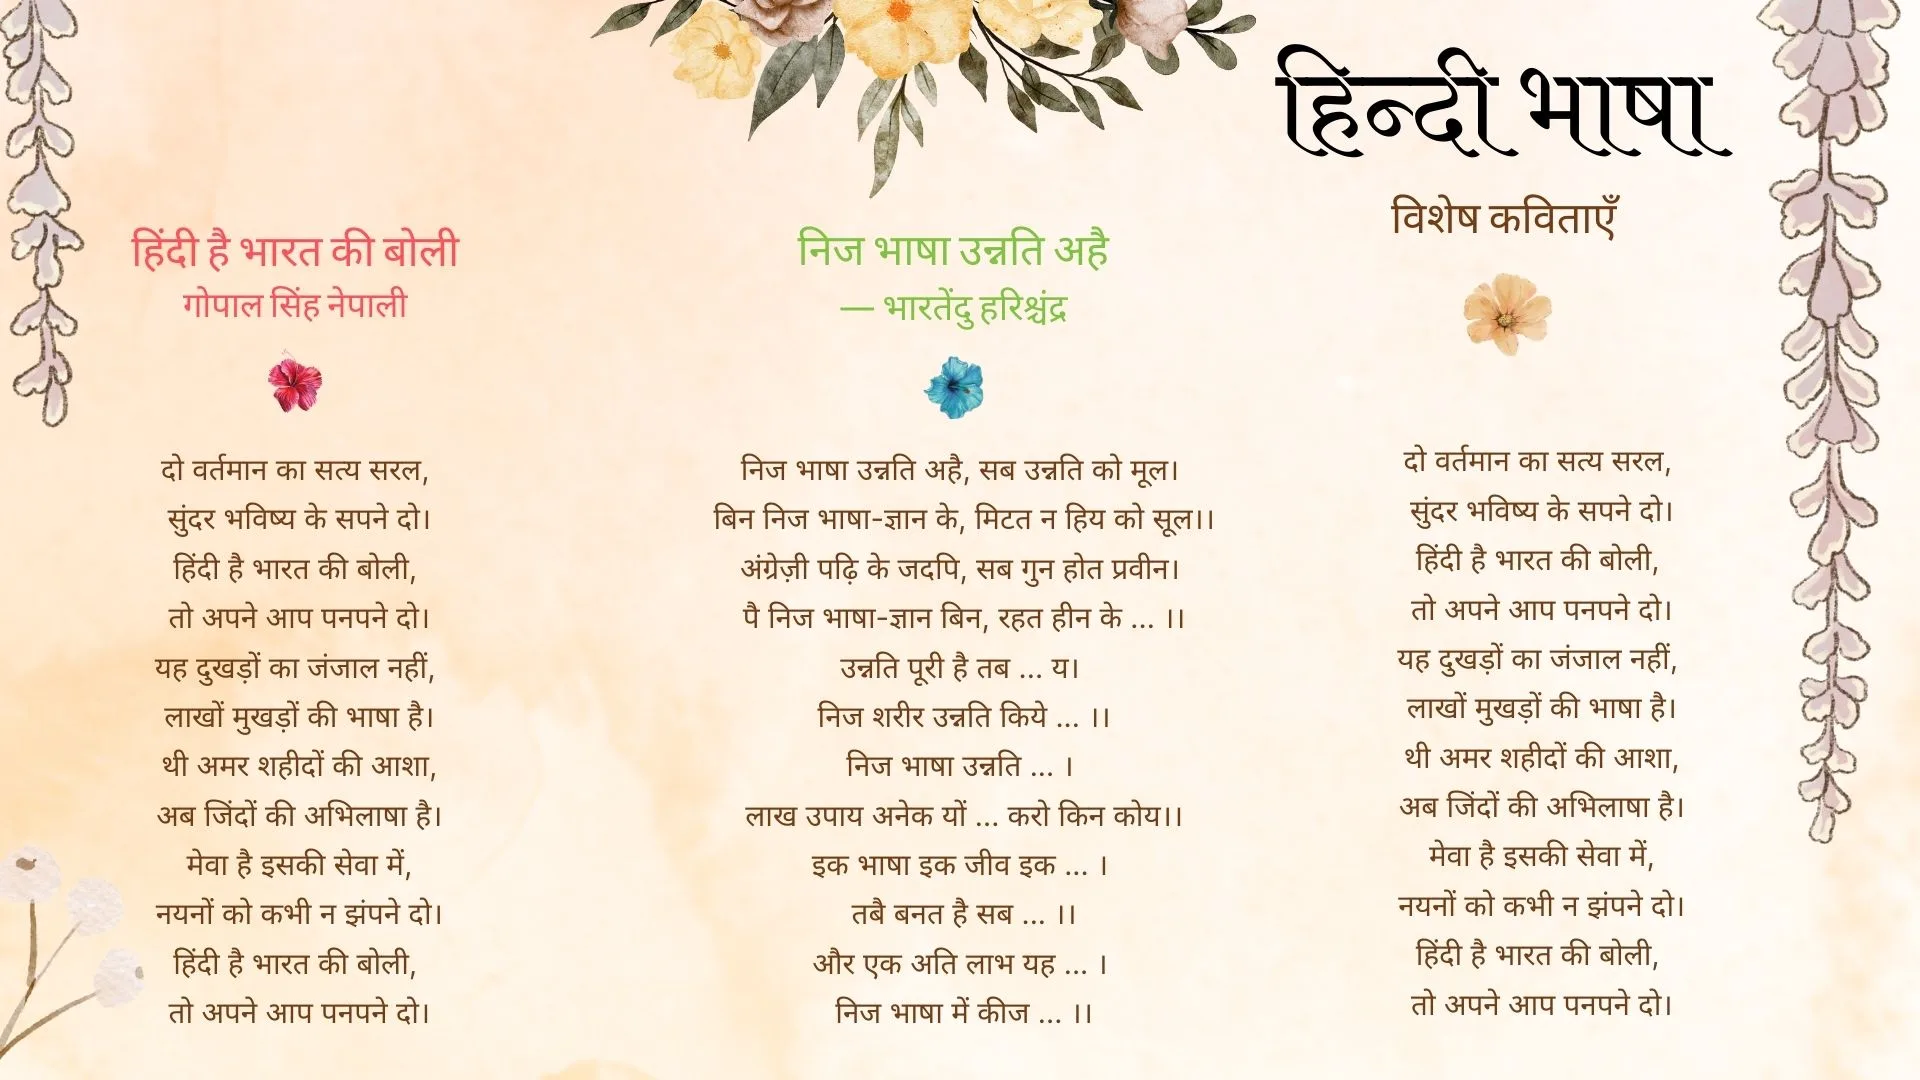 हिन्दी भाषा
विशेष कविताएँ
हिंदी है भारत की बोली
गोपाल सिंह नेपाली
दो वर्तमान का सत्य सरल,
सुंदर भविष्य के सपने दो।
हिंदी है भारत की बोली,
तो अपने आप पनपने दो।
यह दुखड़ों का जंजाल नहीं,
लाखों मुखड़ों की भाषा है।
थी अमर शहीदों की आशा,
अब जिंदों की अभिलाषा है।
मेवा है इसकी सेवा में,
नयनों को कभी न झंपने दो।
हिंदी है भारत की बोली,
तो अपने आप पनपने दो।
निज भाषा उन्नति अहै
— भारतेंदु हरिश्चंद्र
निज भाषा उन्नति अहै, सब उन्नति को मूल।
बिन निज भाषा-ज्ञान के, मिटत न हिय को सूल।।
अंग्रेज़ी पढ़ि के जदपि, सब गुन होत प्रवीन।
पै निज भाषा-ज्ञान बिन, रहत हीन के ... ।।
उन्नति पूरी है तब ... य।
निज शरीर उन्नति किये ... ।।
निज भाषा उन्नति ... ।
लाख उपाय अनेक यों ... करो किन कोय।।
इक भाषा इक जीव इक ... ।
तबै बनत है सब ... ।।
और एक अति लाभ यह ... ।
निज भाषा में कीज ... ।।
दो वर्तमान का सत्य सरल,
सुंदर भविष्य के सपने दो।
हिंदी है भारत की बोली,
तो अपने आप पनपने दो।
यह दुखड़ों का जंजाल नहीं,
लाखों मुखड़ों की भाषा है।
थी अमर शहीदों की आशा,
अब जिंदों की अभिलाषा है।
मेवा है इसकी सेवा में,
नयनों को कभी न झंपने दो।
हिंदी है भारत की बोली,
तो अपने आप पनपने दो।